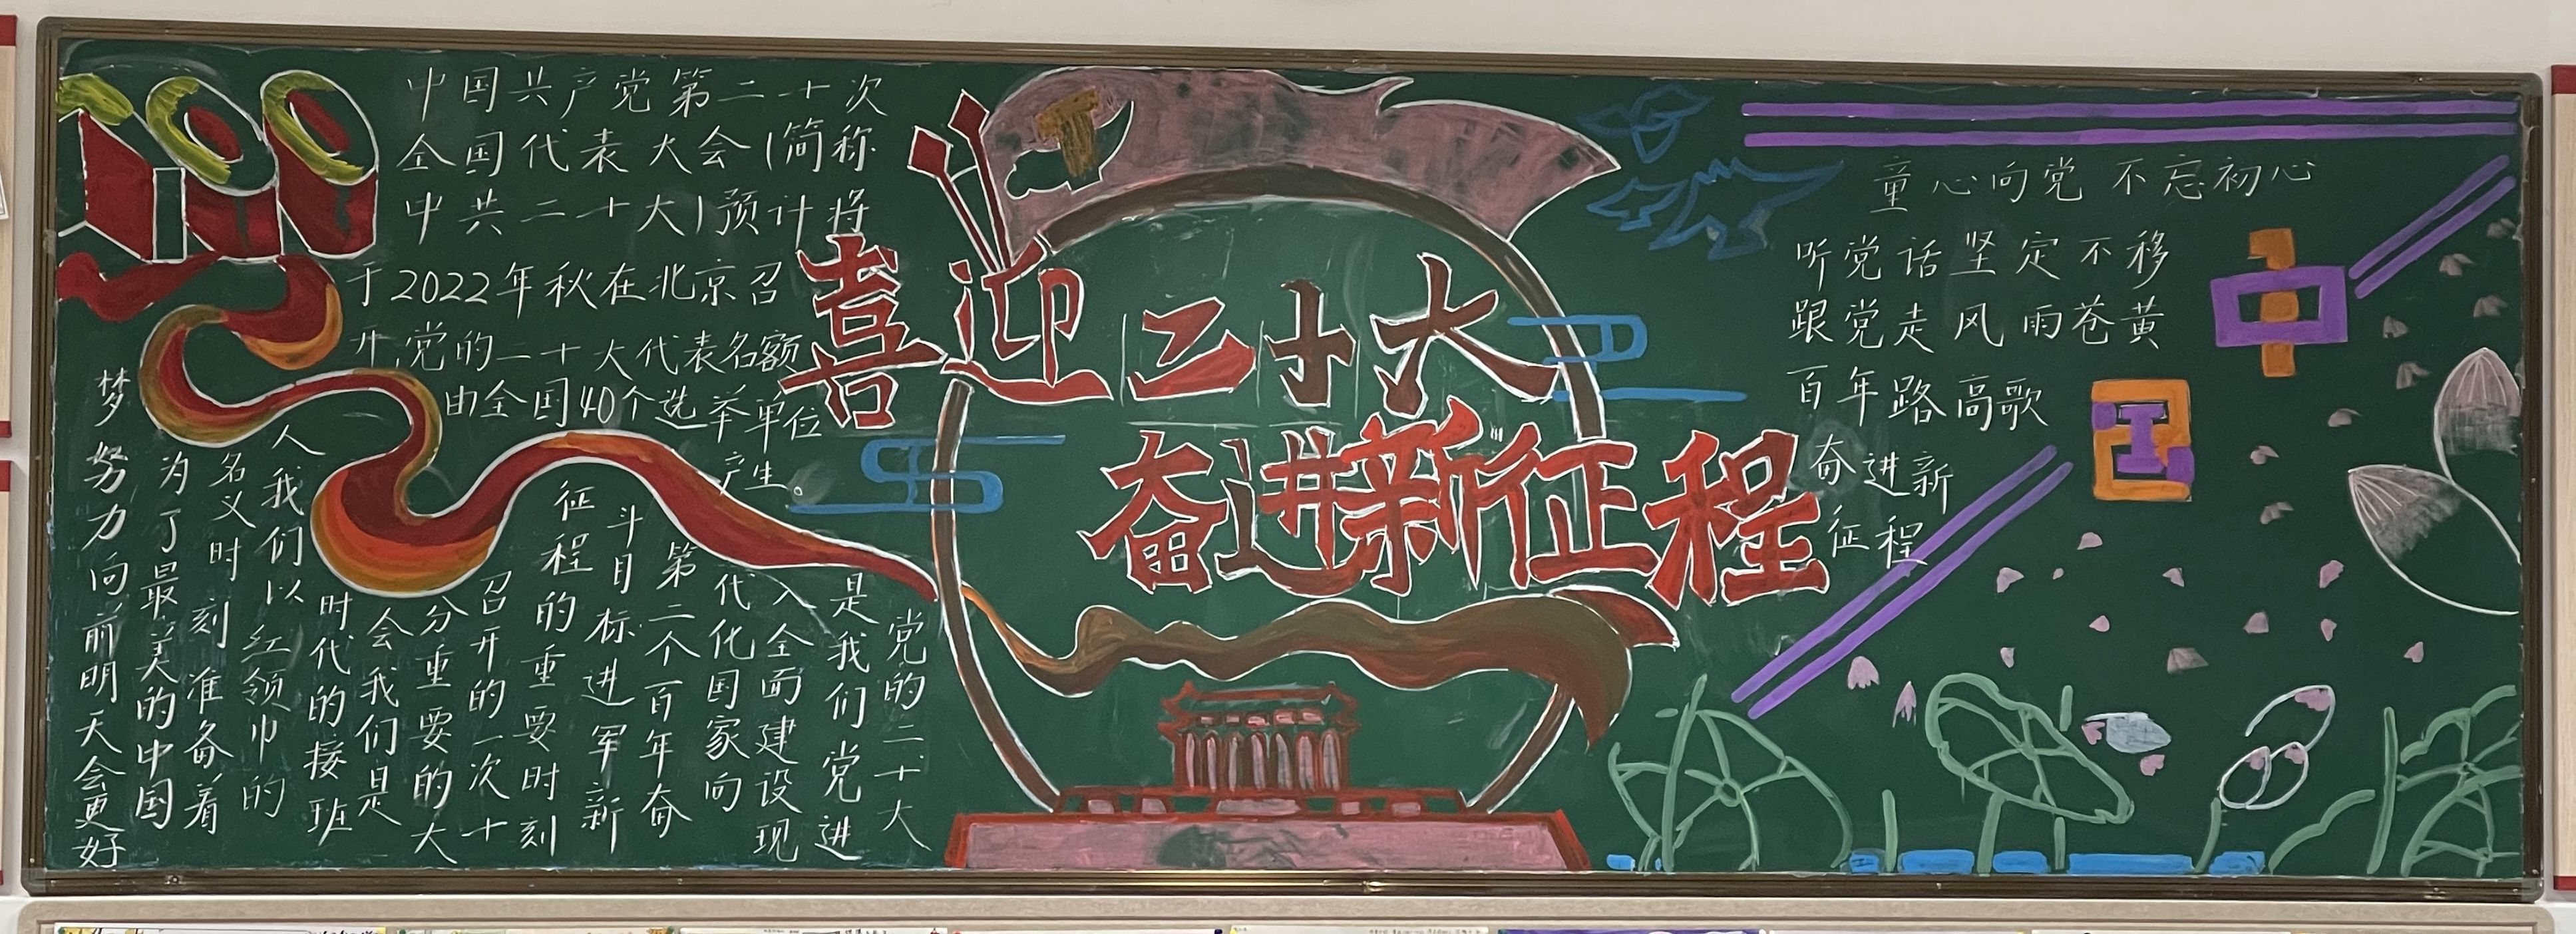 100
中国共产党第二十次
全国代表大会(简称
中共二十大)预计将
于2022年秋在北京召
开,党的二十大代表名额
由全国40个选举单位
产生。
喜迎二十大
奋进新征程
党的二十大
是我们党进
入全面建设现
代化国家向
第二个百年奋
斗目标进军新
征程的重要时刻
召开的一次十
分重要的大
会我们是
时代的接班
人我们以红领巾的
名义时刻准备着
为了最美的中国
梦努力向前明天会更好
童心向党 不忘初心
听党话坚定不移
跟党走风雨苍黄
百年路高歌
奋进新
征程
中
国